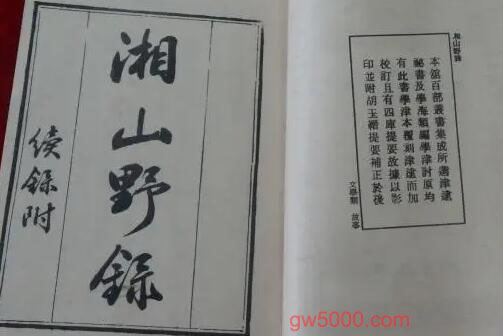 湘山野錄
本館百部叢書集成所選津逮
祕書及學海類編學津討原均
有此書學津本覆刻津逮而加
校訂且有四庫提要故據以影
印並附胡玉縉提要補正於後
文學類 故事
湘山野錄
續錄附
gw5000.com